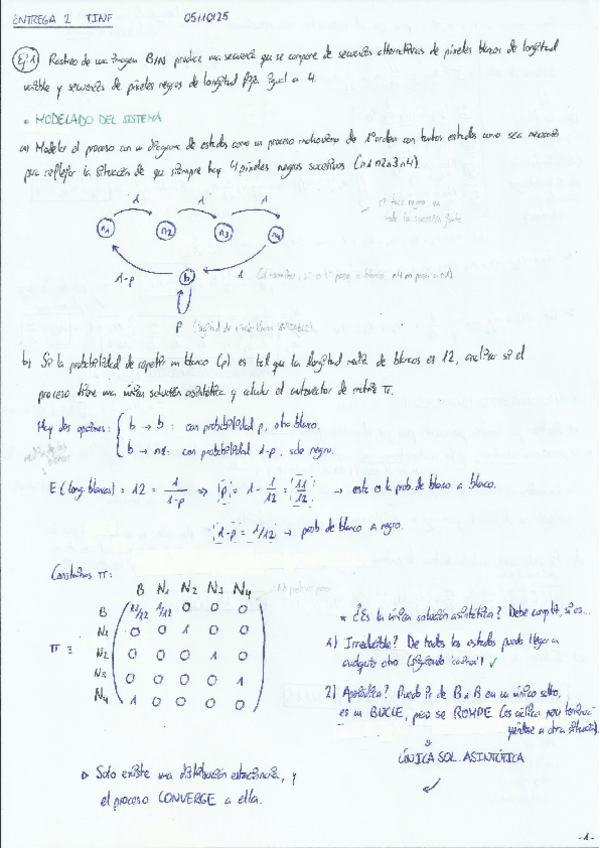 ENTREGA 2 TINF 05/10/25
Ej 1) Rastreo de una imagen B/N produce una secuencia que se compone de secuencias alternativas de píxeles blancos de longitud
variable y secuencias de píxeles negros de longitud fija igual a 4.
• MODELADO DEL SISTEMA
a) Modelar el proceso con un diagrama de estados como un proceso markoviano de 1º orden con tantos estados como sea necesario
para reflejar la situación de que siempre hay 4 píxeles negros sucesivos (n1 n2 n3 n4).
1 1 1
n1 n2 n3 n4
1-p b 1
p
b) Si la probabilidad de repetir un blanco (p) es tal que la longitud media de blancos es 12, analizar si el
proceso tiene una única solución asintótica y calcular el autovector de matriz π.
Hay dos opciones: { b → b : con probabilidad p, otro blanco.
b → n1: con probabilidad 1-p, sale negro.
E(long. blancos) = 12 = 1/1-p => p = 1 - 1/12 = 11/12 → este es la prob. de blanco a blanco.
1-p = 1/12 → prob de blanco a negro.
Construimos π:
B N1 N2 N3 N4
B 11/12 1/12 0 0 0
N1 0 0 1 0 0
π = N2 0 0 0 1 0
N3 0 0 0 0 1
N4 1 0 0 0 0
* ¿Es la única solución asintótica? Debe cumplir, si es...
1) Irreducible? De todos los estados puedo llegar a
cualquier otro (siguiendo "cadena") ✓
2) Aperiódica? Puedo ir de B a B en un único salto,
es un BUCLE, pero se ROMPE
a otra situación).
ÚNICA SOL. ASINTÓTICA
✓
▷ Solo existe una distribución estacionaria, y
el proceso CONVERGE a ella.
-1-